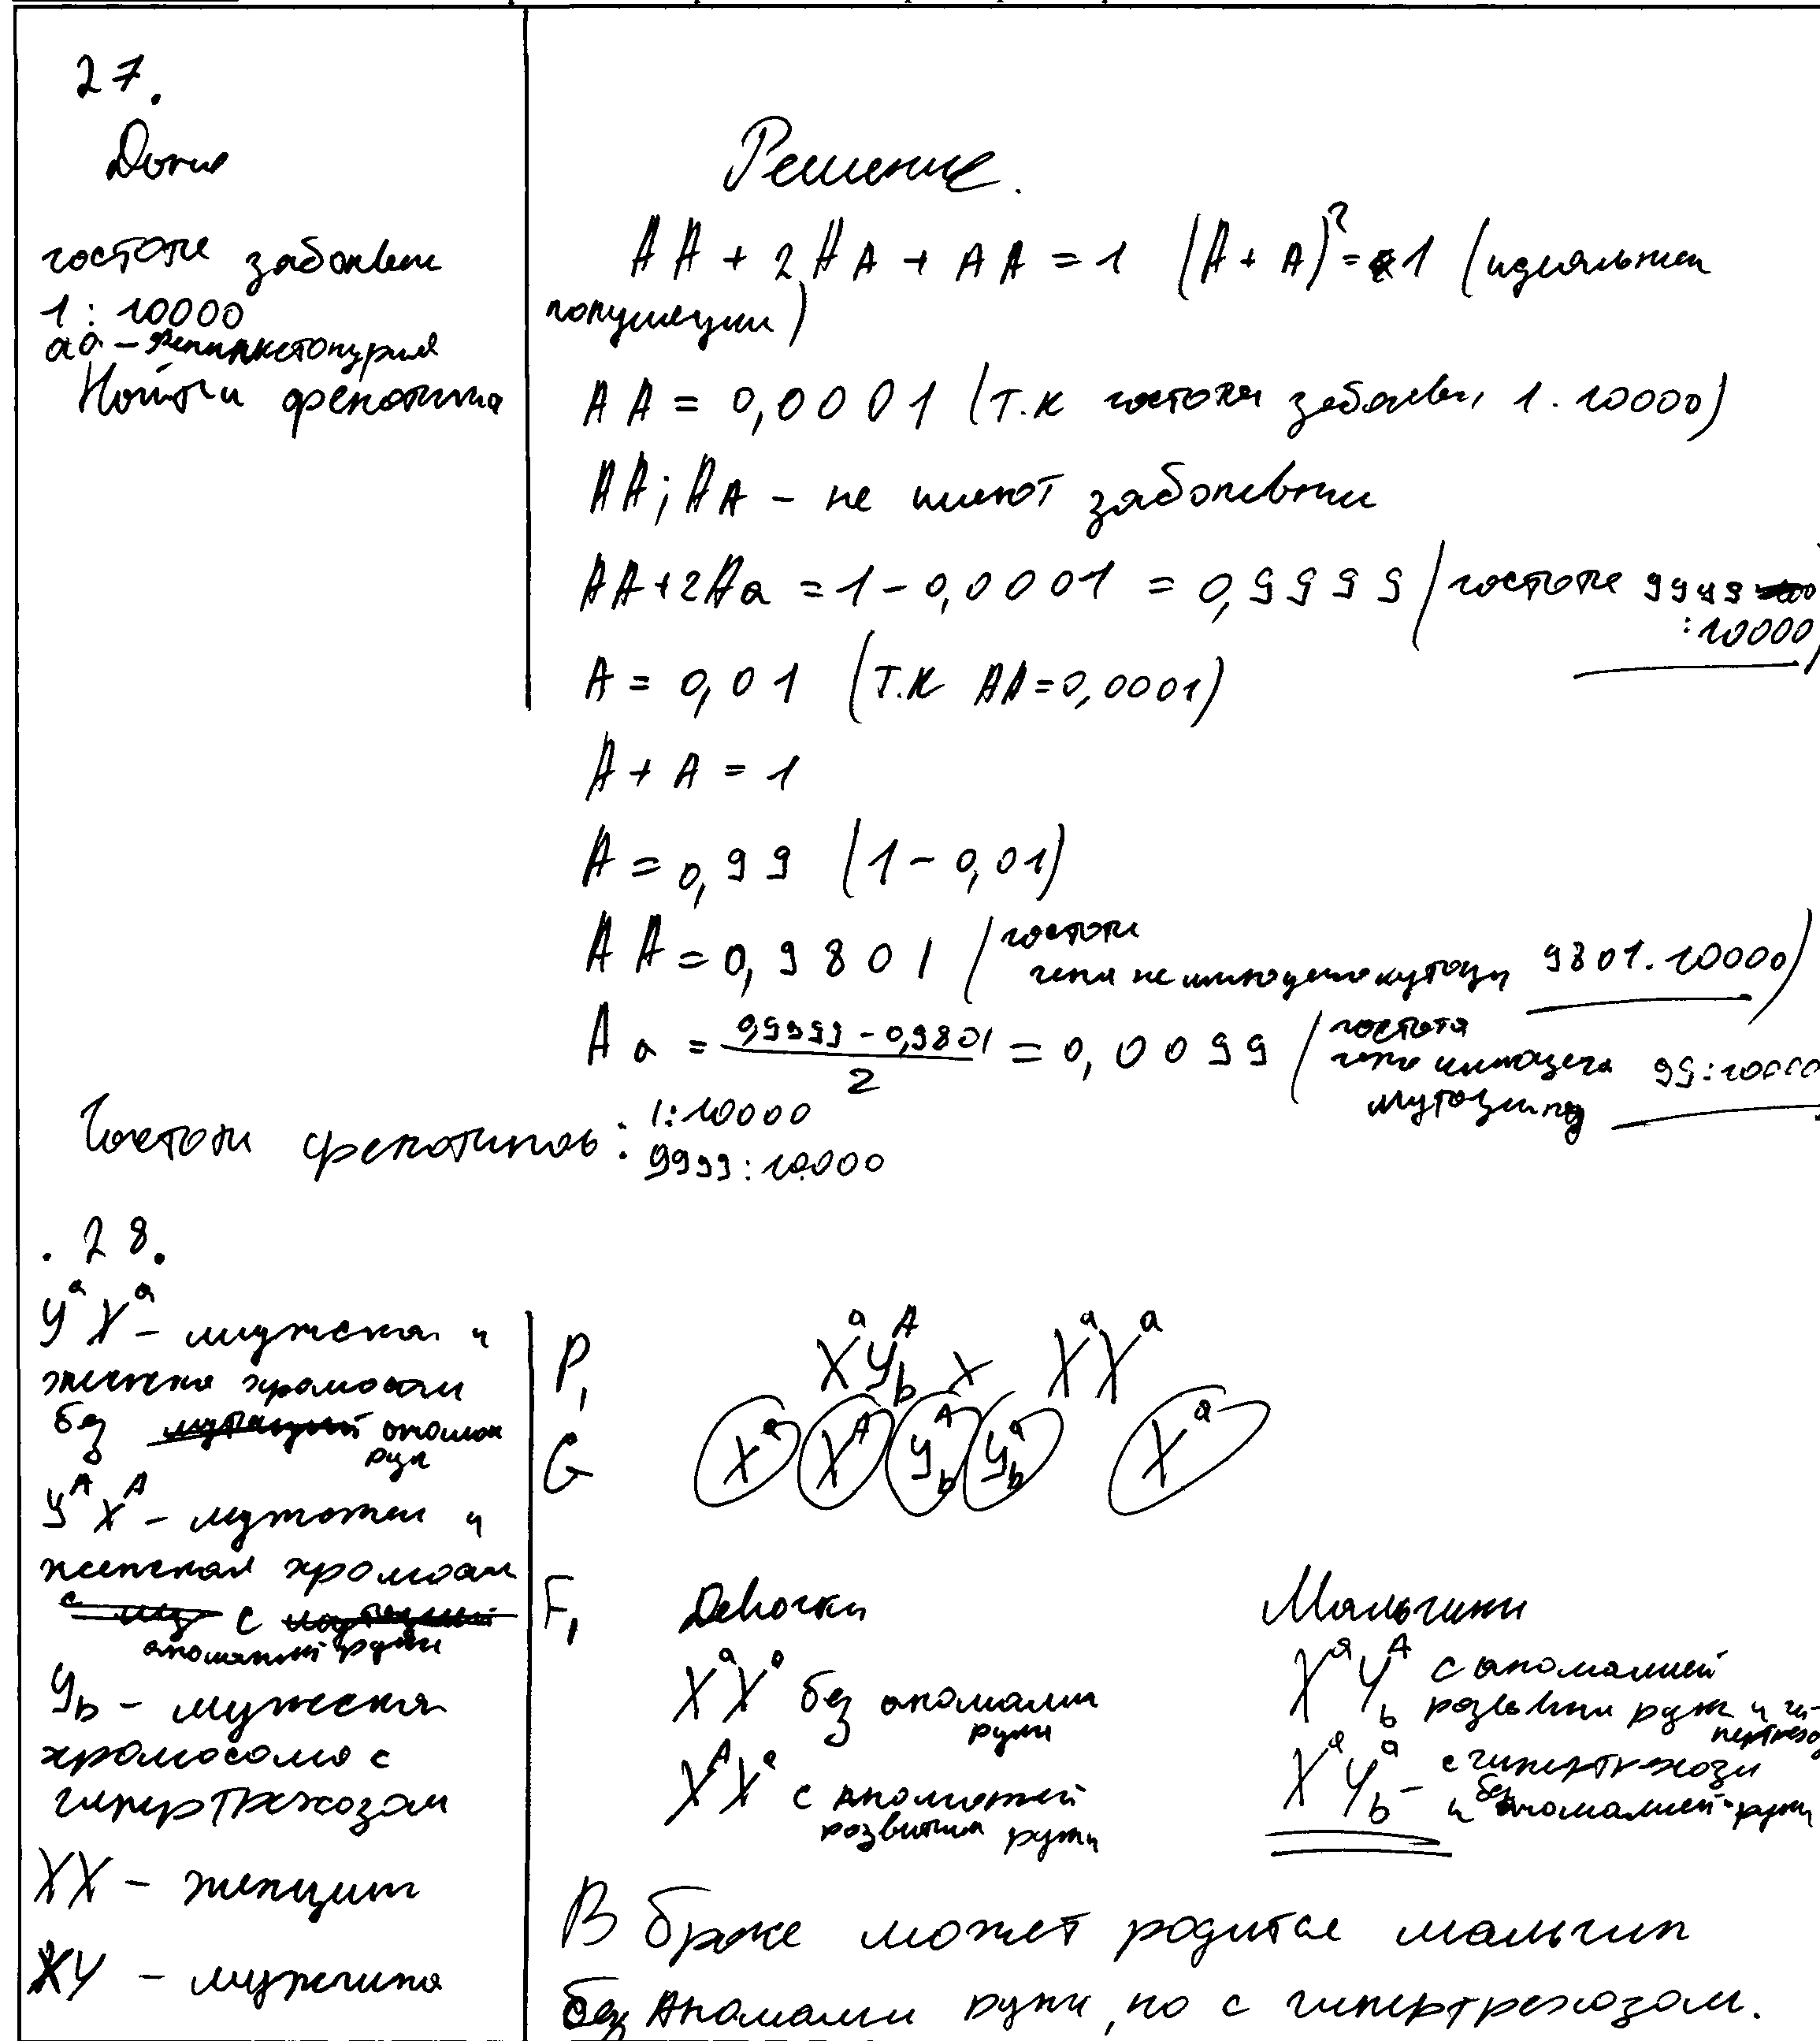 27.
Дано
частота заболеван
1 : 10000
aa – фенилкетонурия
Найти фенотипа
Решение.
AA + 2Aa + aa = 1 (A + a)² = 1 (идеальная
популяции)
aa = 0,0001 (т.к частота заболеван 1:10000)
AA; Aa – не имеют заболевани
AA+2Aa = 1 – 0,0001 = 0,9999 (частота 9999
:10000)
a = 0,01 (т.к aa=0,0001)
A + a = 1
A = 0,99 (1 – 0,01)
AA = 0,9801 (частота
гена не имеющего мутаци 9801:10000)
Aa = 0,9999 – 0,9801 / 2 = 0,0099 (частота
гена имеющего 99:10000
мутации
Частоты фенотипов: 1:10000
9999:10000
28.
YᵃXᵃ – мужская и
женская хромосом
без аномал
руки
YᴬXᴬ – мужская и
женская хромосом
с
аномалией руки
Yb – мужская
хромосома с
гипертрихозом
XX – женщина
XY – мужчина
P₁ XᵃYᴬb × XᵃXᵃ
G Xᵃ Xᴬ Yᴬb Yᵃb Xᵃ
F₁ Девочки Мальчики
XᵃXᵃ без аномалии
руки
XᴬXᵃ с аномалией
развития руки
XᵃYᴬb с аномалией
развития руки и ги-
пертрихо
XᵃYᵃb – с гипертрихози
и без аномалией руки
В браке может родится мальчик
без Аномалии руки, но с гипертрехозом.